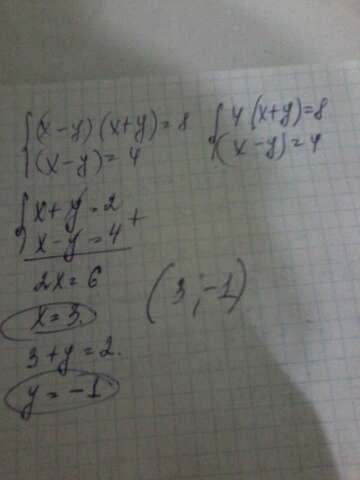 {(x-y)(x+y)=8
(x-y)=4
{4(x+y)=8
(x-y)=4
{x+y=2
x-y=4 +
2x=6
x=3.
3+y=2.
y=-1
(3;-1)